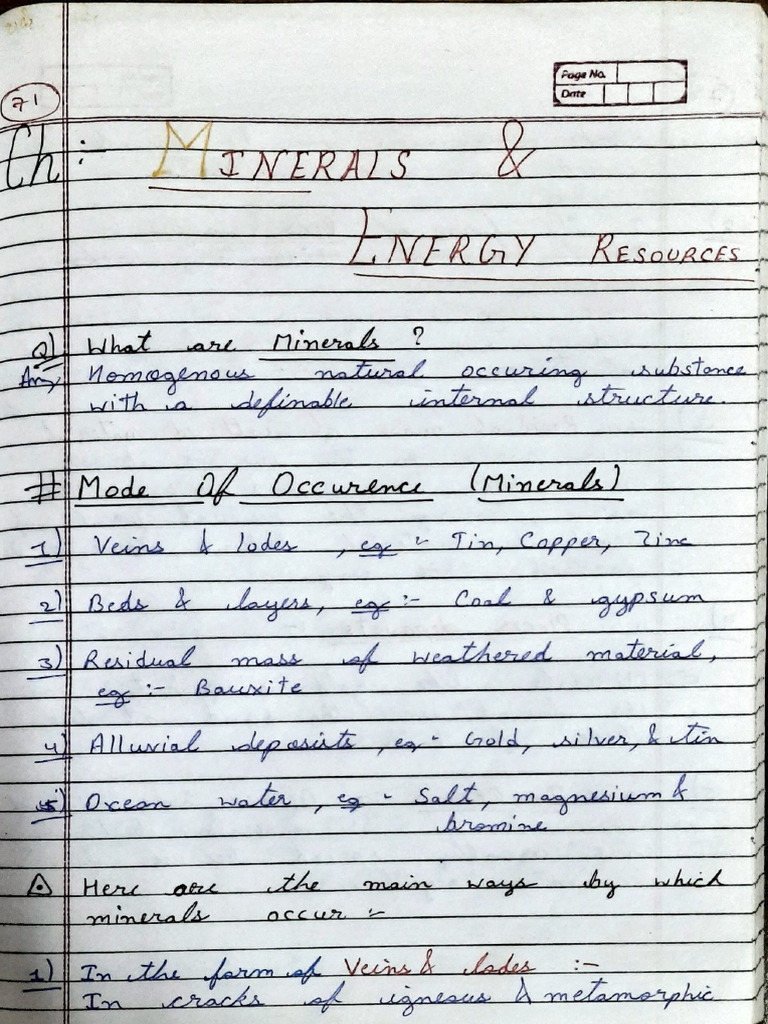 Page No.
Date
71
Ch :- MINERALS &
ENERGY RESOURCES
Q) What are Minerals ?
Ans Homogenous natural occuring substance
with a definable internal structure.
# Mode Of Occurence (Minerals)
1) Veins & lodes , eg :- Tin, Copper, Zinc
2) Beds & layers, eg :- Coal & gypsum
3) Residual mass of weathered material,
eg :- Bauxite
4) Alluvial deposists , eg - Gold, silver, & tin
5) Ocean water , eg - Salt, magnesium &
bromine
Here are the main ways by which
minerals occur :-
1) In the form of Veins & lodes :-
In cracks of igneous & metamorphic